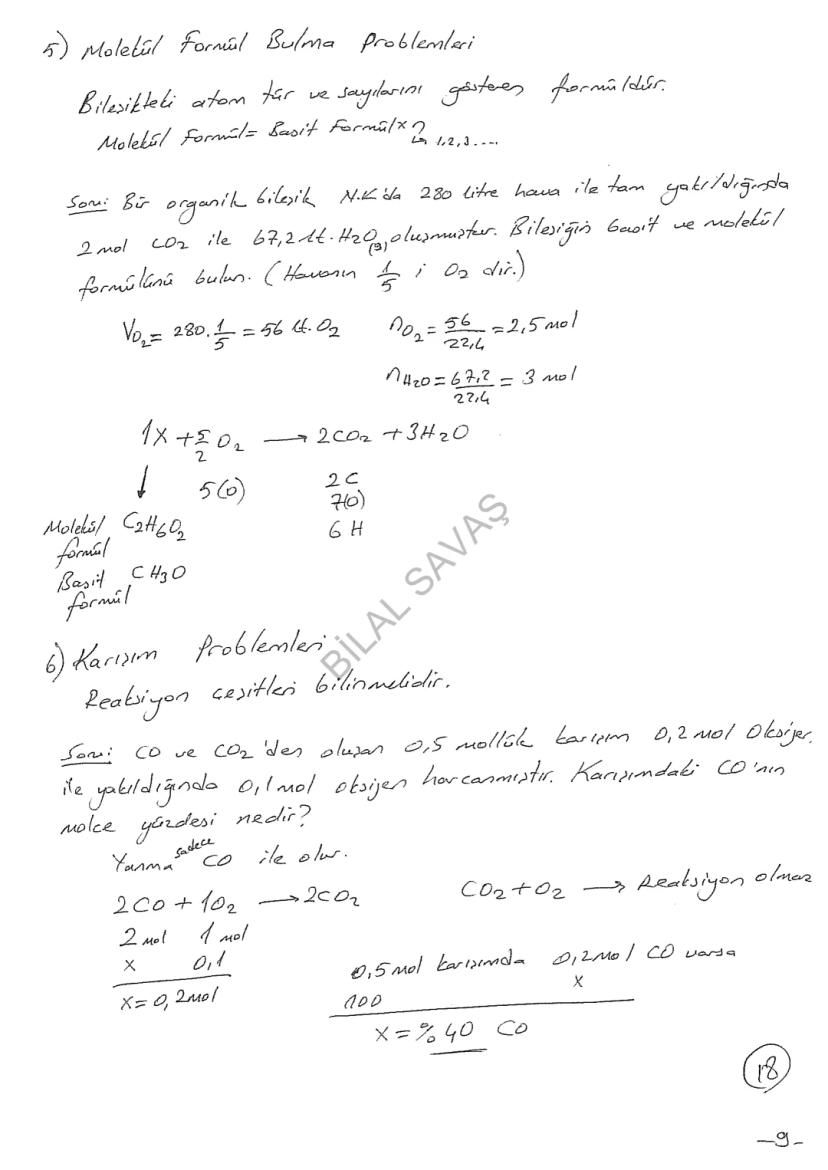 5) Molekül Formül Bulma Problemleri
Bileşikteki atom tür ve sayılarını gösteren formüldür.
Molekül Formül = Basit Formül x ?
↳ 1,2,3....
Soru: Bir organik bileşik N.K'da 280 litre hava ile tam yakıldığında
2 mol CO2 ile 67,2 Lt. H2O(g) oluşmuştur. Bileşiğin basit ve molekül
formülünü bulun. (Havanın 1/5 i O2 dir.)
VO2 = 280 . 1/5 = 56 Lt. O2 nO2 = 56/22,4 = 2,5 mol
nH2O = 67,2/22,4 = 3 mol
1X + 5/2 O2 → 2CO2 + 3H2O
↓ 5(O) 2C
7(O)
Molekül formül C2H6O2 6H
Basit formül CH3O
6) Karışım Problemleri
Reaksiyon çeşitleri bilinmelidir.
Soru: CO ve CO2'den oluşan 0,5 mollük karışım 0,2 mol Oksijen
ile yakıldığında 0,1 mol oksijen harcanmıştır. Karışımdaki CO'nın
molce yüzdesi nedir?
Yanma sadece CO ile olur.
2CO + 1O2 → 2CO2 CO2 + O2 → Reaksiyon olmaz
2 mol 1 mol
x 0,1 0,5 mol karışımda 0,2 mol CO varsa
x = 0,2 mol 100 x
x = %40 CO
18
-9-
BİLAL SAVAŞ